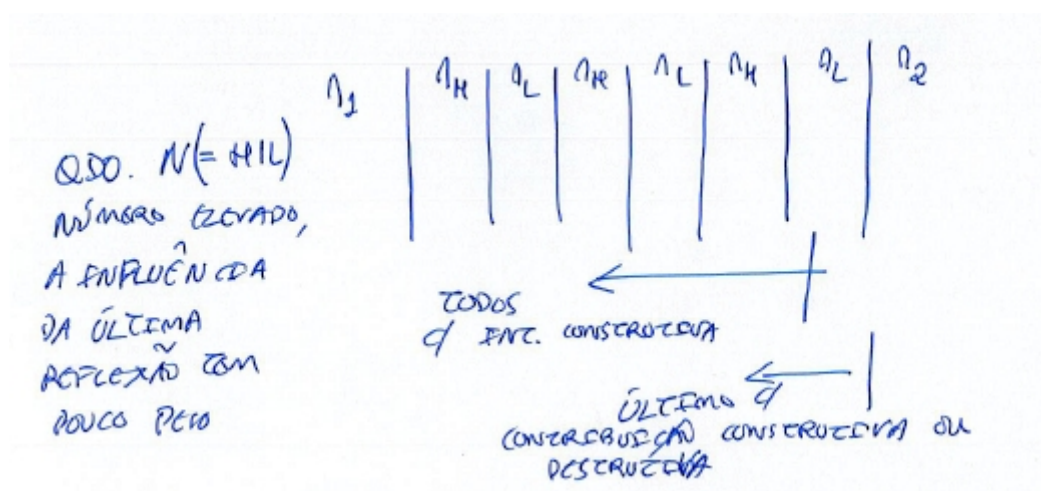 n1 nH nL nH nL nH nL n2
QDO. N(= H|L)
NÚMERO ELEVADO,
A INFLUÊNCIA
DA ÚLTIMA
REFLEXÃO TEM
POUCO PESO
TODOS
c/ INT. CONSTRUTIVA
ÚLTIMO c/
CONTRIBUIÇÃO CONSTRUTIVA OU
DESTRUTIVA